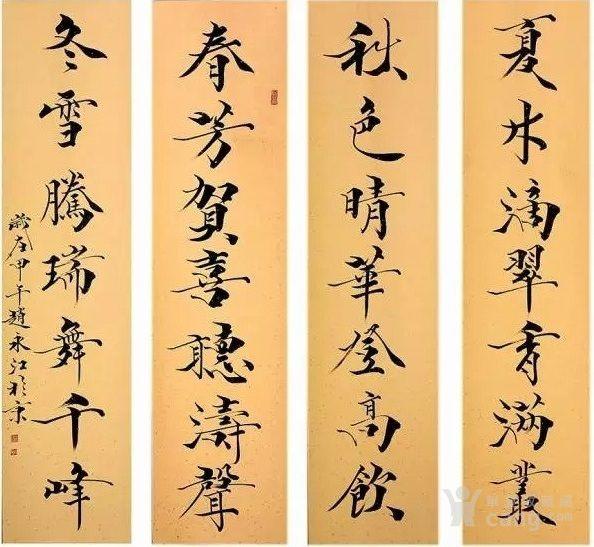 夏木滴翠香滿叢
秋色晴華登高飲
春芳賀喜聽濤聲
冬雪騰瑞舞千峰
歲在甲午趙永江於京